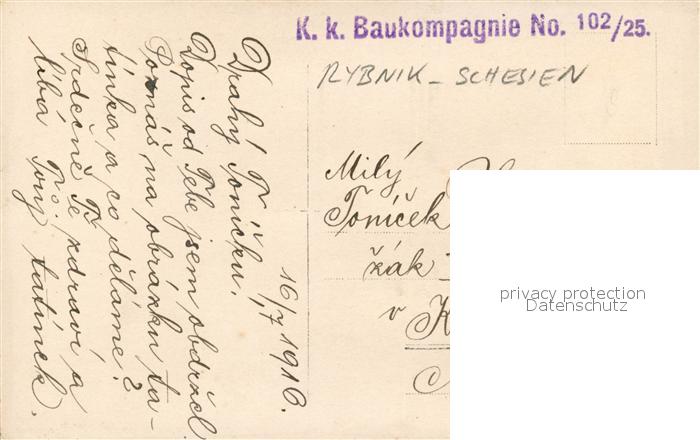 K. k. Baukompagnie No. 102/25.
RYBNIK - SCHESIEN
16/7 1916.
Drahý Toníčku.
Dopis od Tebe jsem obdržel
Poznáš na obrázku ta-
tínka a co děláme?
Srdečně Tě zdraví a
líbá Tvůj tatínek.
Milý
Toníček
žák
v K
privacy protection
Datenschutz